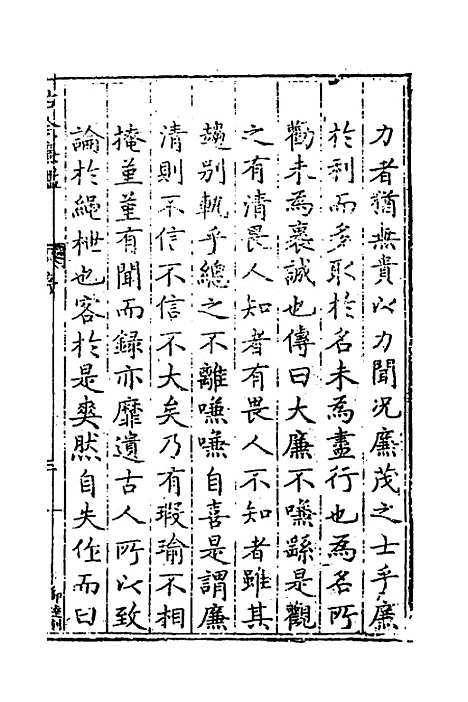 力者猶無貴以力聞况廉茂之士乎廉
於利而多取於名未為盡行也為名所
勸未為衷誠也傳曰大廉不嗛繇是觀
之有清畏人知者有畏人不知者雖其
趨别軌乎總之不離嗛嗛自喜是謂廉
清則不信不信不大矣乃有瑕瑜不相
掩堇堇有聞而録亦靡遺古人所以致
論於繩枻也客於是爽然自失作而曰